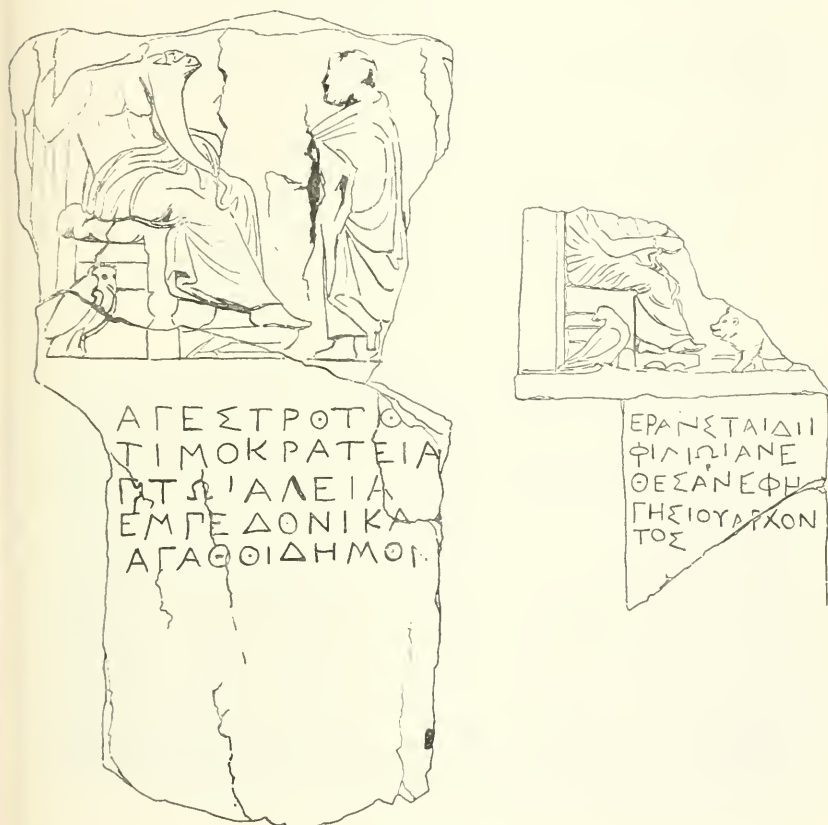 ΑΓΕΣΤΡΟΤΟ
ΤΙΜΟΚΡΑΤΕΙΑ
ΕΜΠΕΔΟΝΙΚΑ
ΑΓΑΘΟΙΔΗΜΟΙ
ΕΡΑΝΣΤΑΙΔΙΙ
ΦΙΛΙΩΙΑΝΕ
ΘΕΣΑΝΕΦΗ
ΓΗΣΙΟΥΑΡΧΟΝ
ΤΟΣ